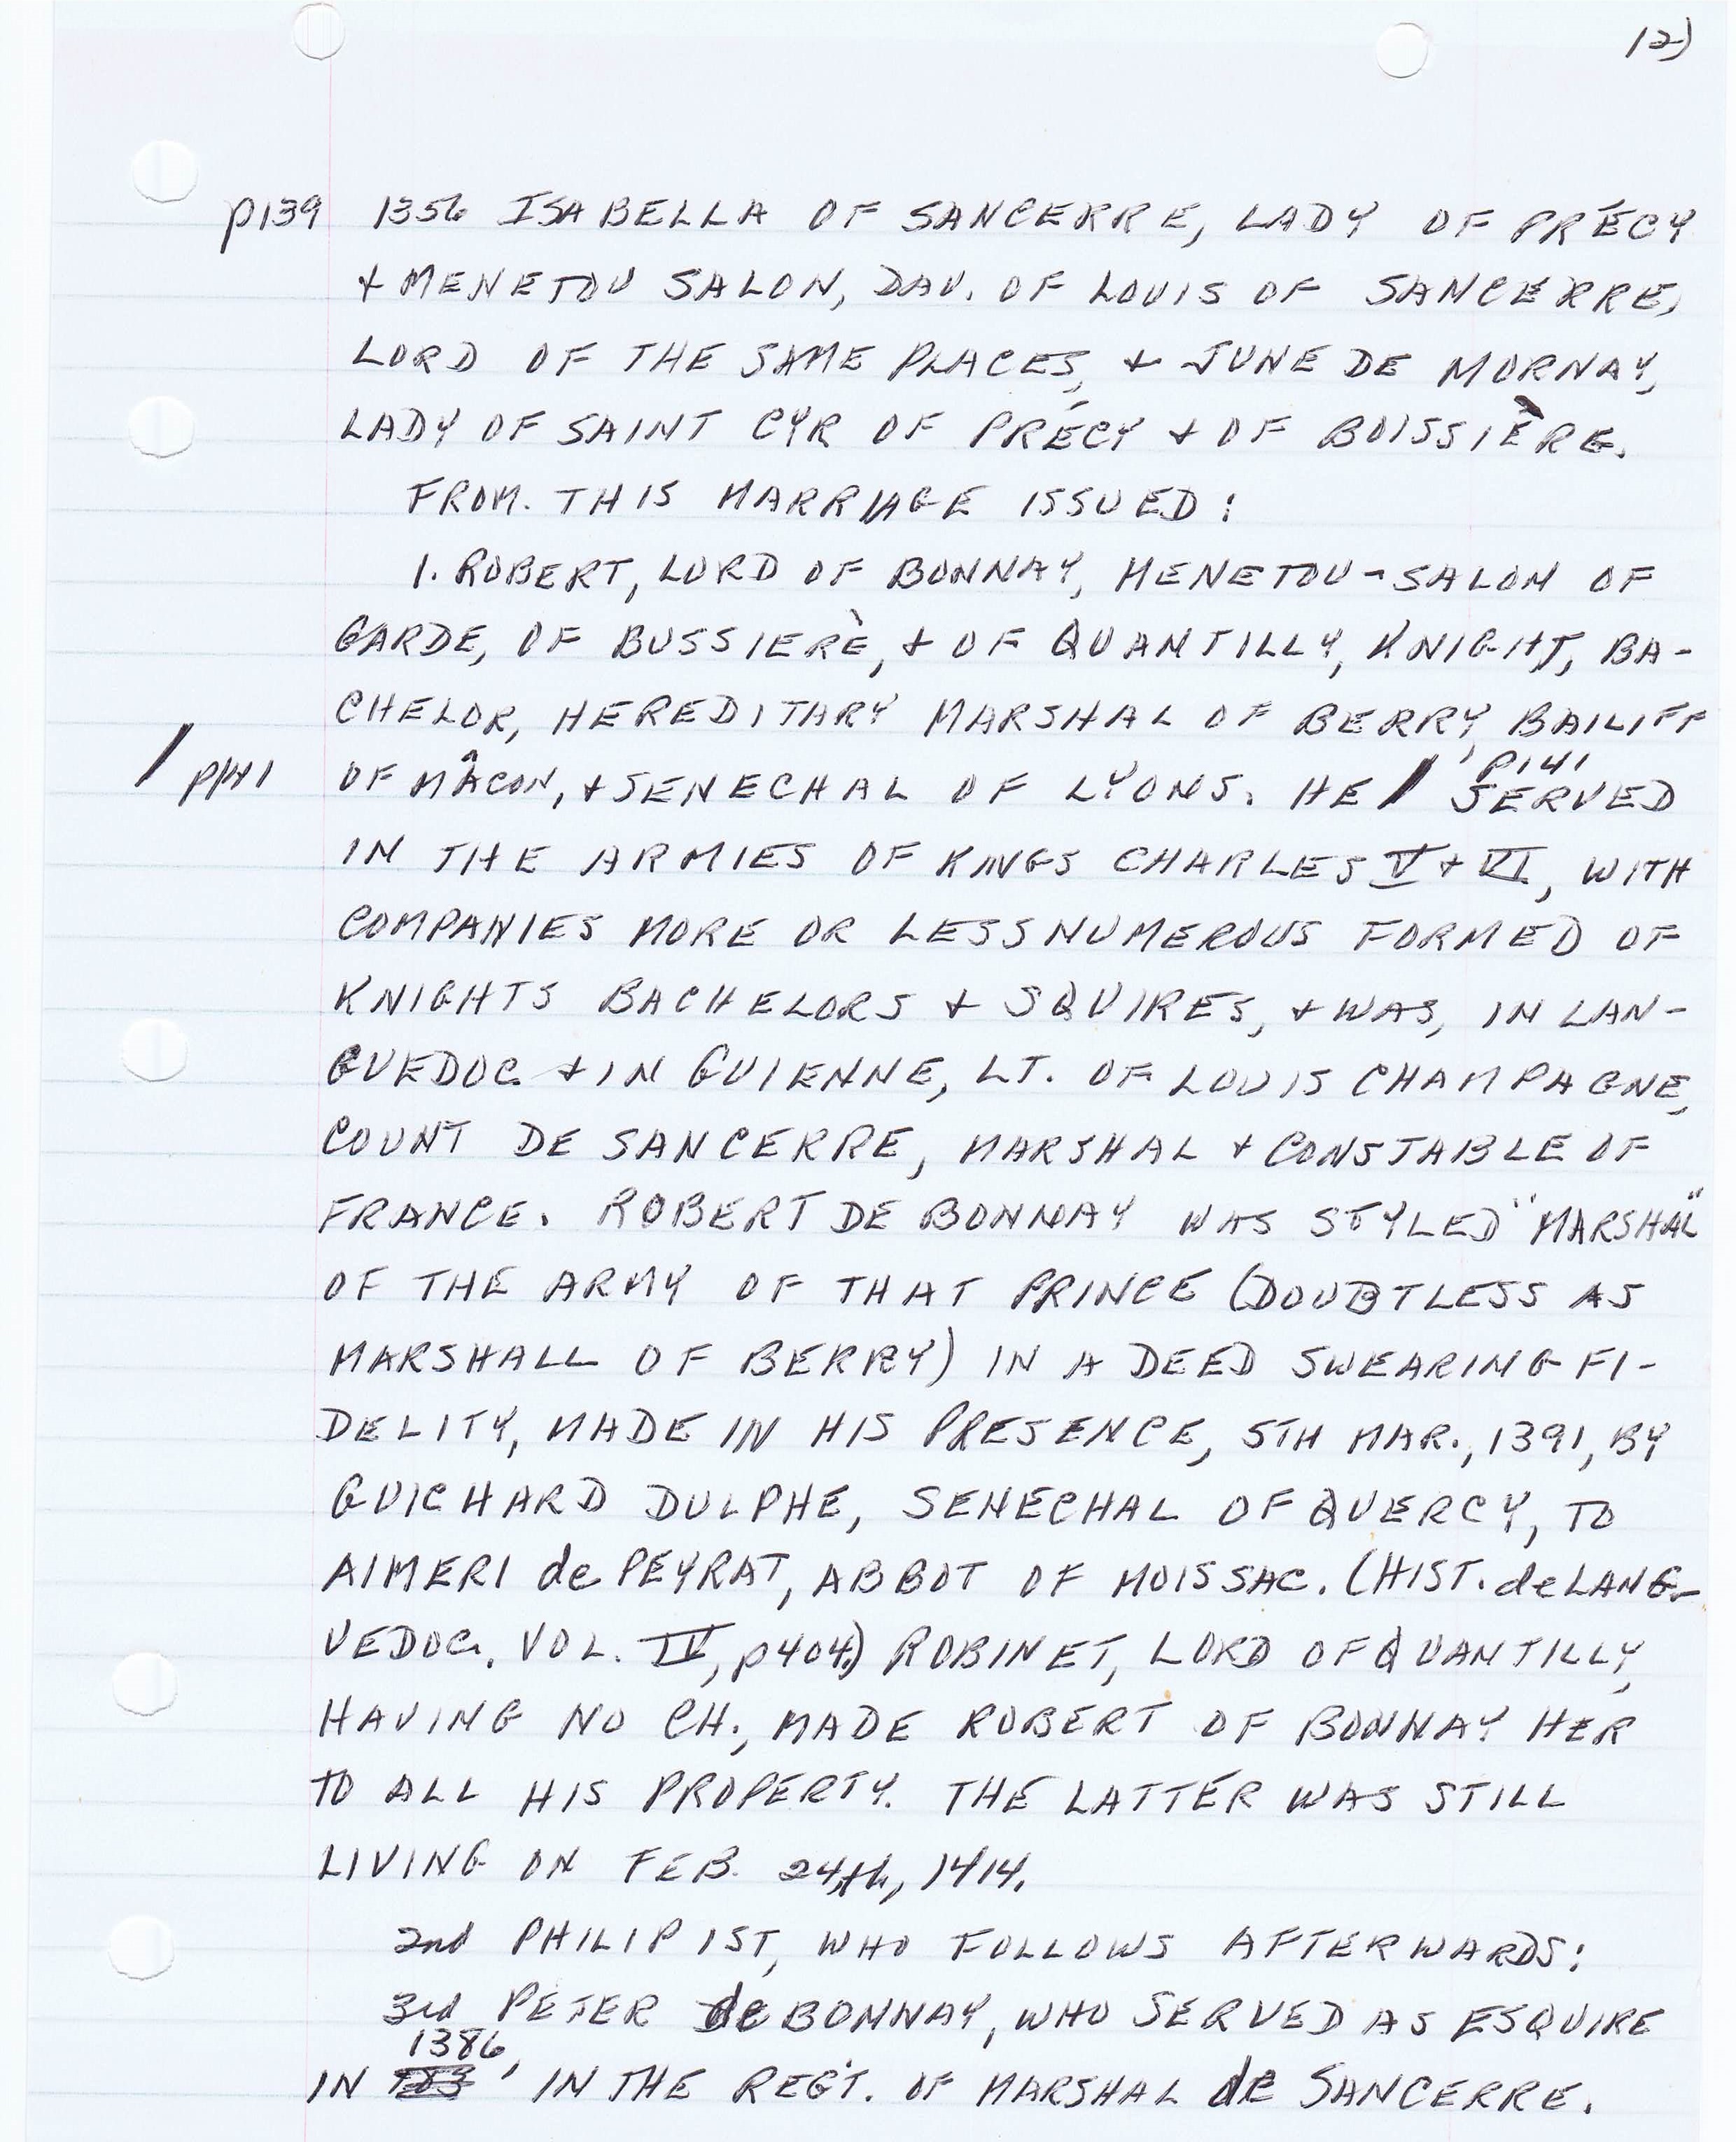 12)
p139 1356 ISABELLA OF SANCERRE, LADY OF PRÉCY
+ MENETOU SALON, DAU. OF LOUIS OF SANCERRE,
LORD OF THE SAME PLACES, + JUNE DE MORNAY,
LADY OF SAINT CYR OF PRÉCY + OF BOISSIÈRE.
FROM. THIS MARRIAGE ISSUED:
1. ROBERT, LORD OF BONNAY, MENETOU-SALON OF
GARDE, OF BUSSIERÈ, + OF QUANTILLY, KNIGHT, BA-
CHELOR, HEREDITARY MARSHAL OF BERRY, BAILIFF
/ p141 OF MÂCON, + SENECHAL OF LYONS. HE / p141 SERVED
IN THE ARMIES OF KINGS CHARLES V + VI, WITH
COMPANIES MORE OR LESS NUMEROUS FORMED OF
KNIGHTS BACHELORS + SQUIRES, + WAS, IN LAN-
GUEDOC + IN GUIENNE, LT. OF LOUIS CHAMPAGNE,
COUNT DE SANCERRE, MARSHAL + CONSTABLE OF
FRANCE. ROBERT DE BONNAY WAS STYLED "MARSHAL"
OF THE ARMY OF THAT PRINCE (DOUBTLESS AS
MARSHALL OF BERRY) IN A DEED SWEARING FI-
DELITY, MADE IN HIS PRESENCE, 5TH MAR., 1391, BY
GUICHARD DULPHE, SENECHAL OF QUERCY, TO
AIMERI de PEYRAT, ABBOT OF MOISSAC. (HIST. de LANG-
UEDOC. VOL. IV, p404.) ROBINET, LORD OF QUANTILLY,
HAVING NO CH., MADE ROBERT OF BONNAY HER
TO ALL HIS PROPERTY. THE LATTER WAS STILL
LIVING ON FEB. 24th, 1414.
2nd PHILIP IST, WHO FOLLOWS AFTERWARDS:
3rd PETER de BONNAY, WHO SERVED AS ESQUIRE
IN 1386, IN THE REG'T. OF MARSHAL de SANCERRE.